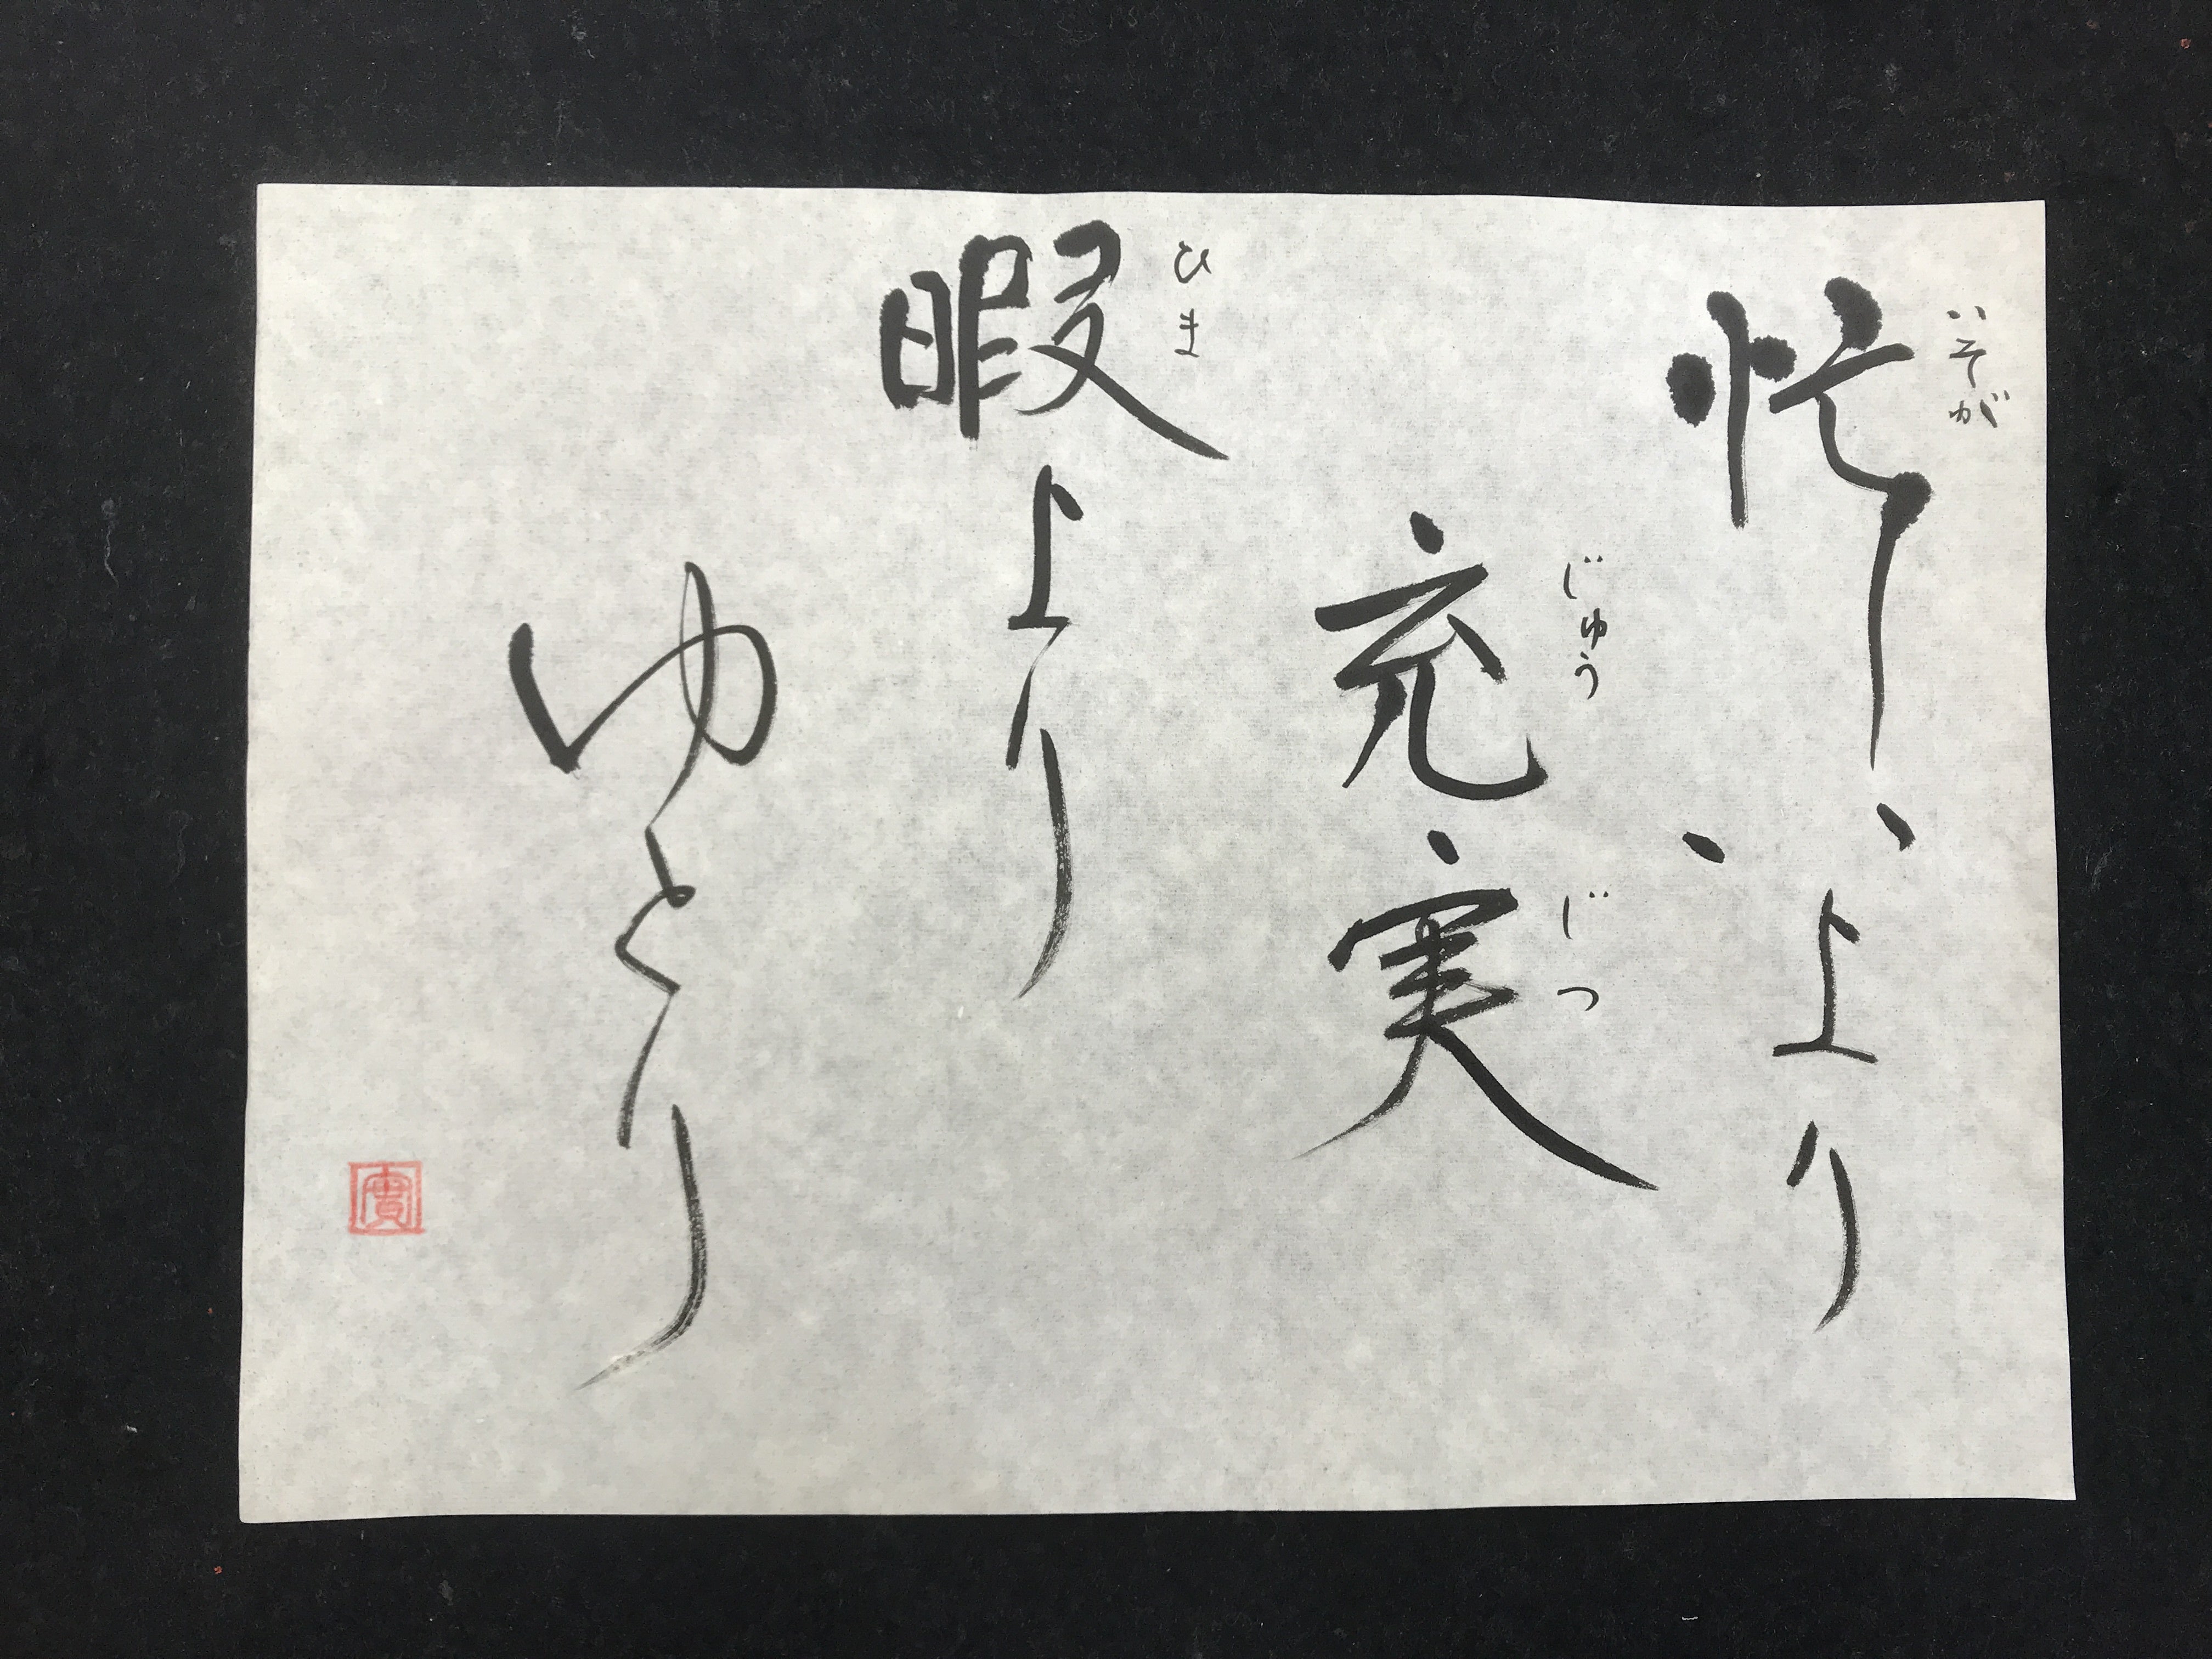 忙しいより
いそが
充実
じゅうじつ
暇より
ひま
ゆとり
實